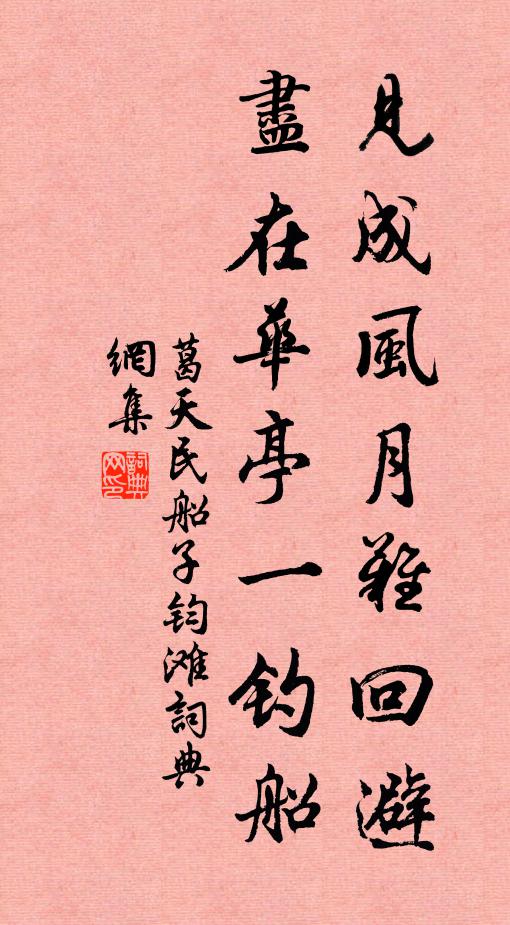 見成風月難回避
盡在華亭一钓船
葛天民船子钓滩詞典
網集
詞典
网印